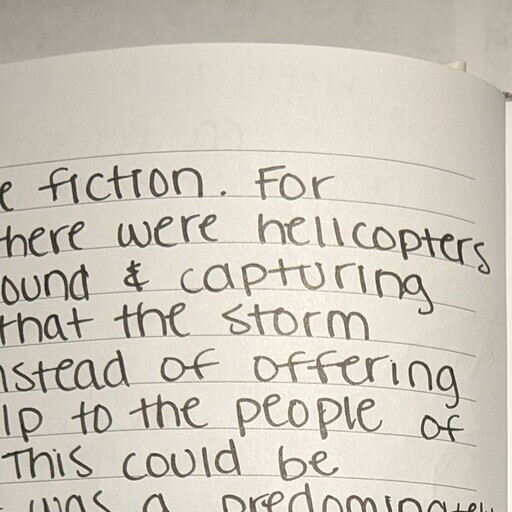 e fiction. For
here were helicopters
ound & capturing
that the storm
nstead of offering
lp to the people of
This could be
was a predominately